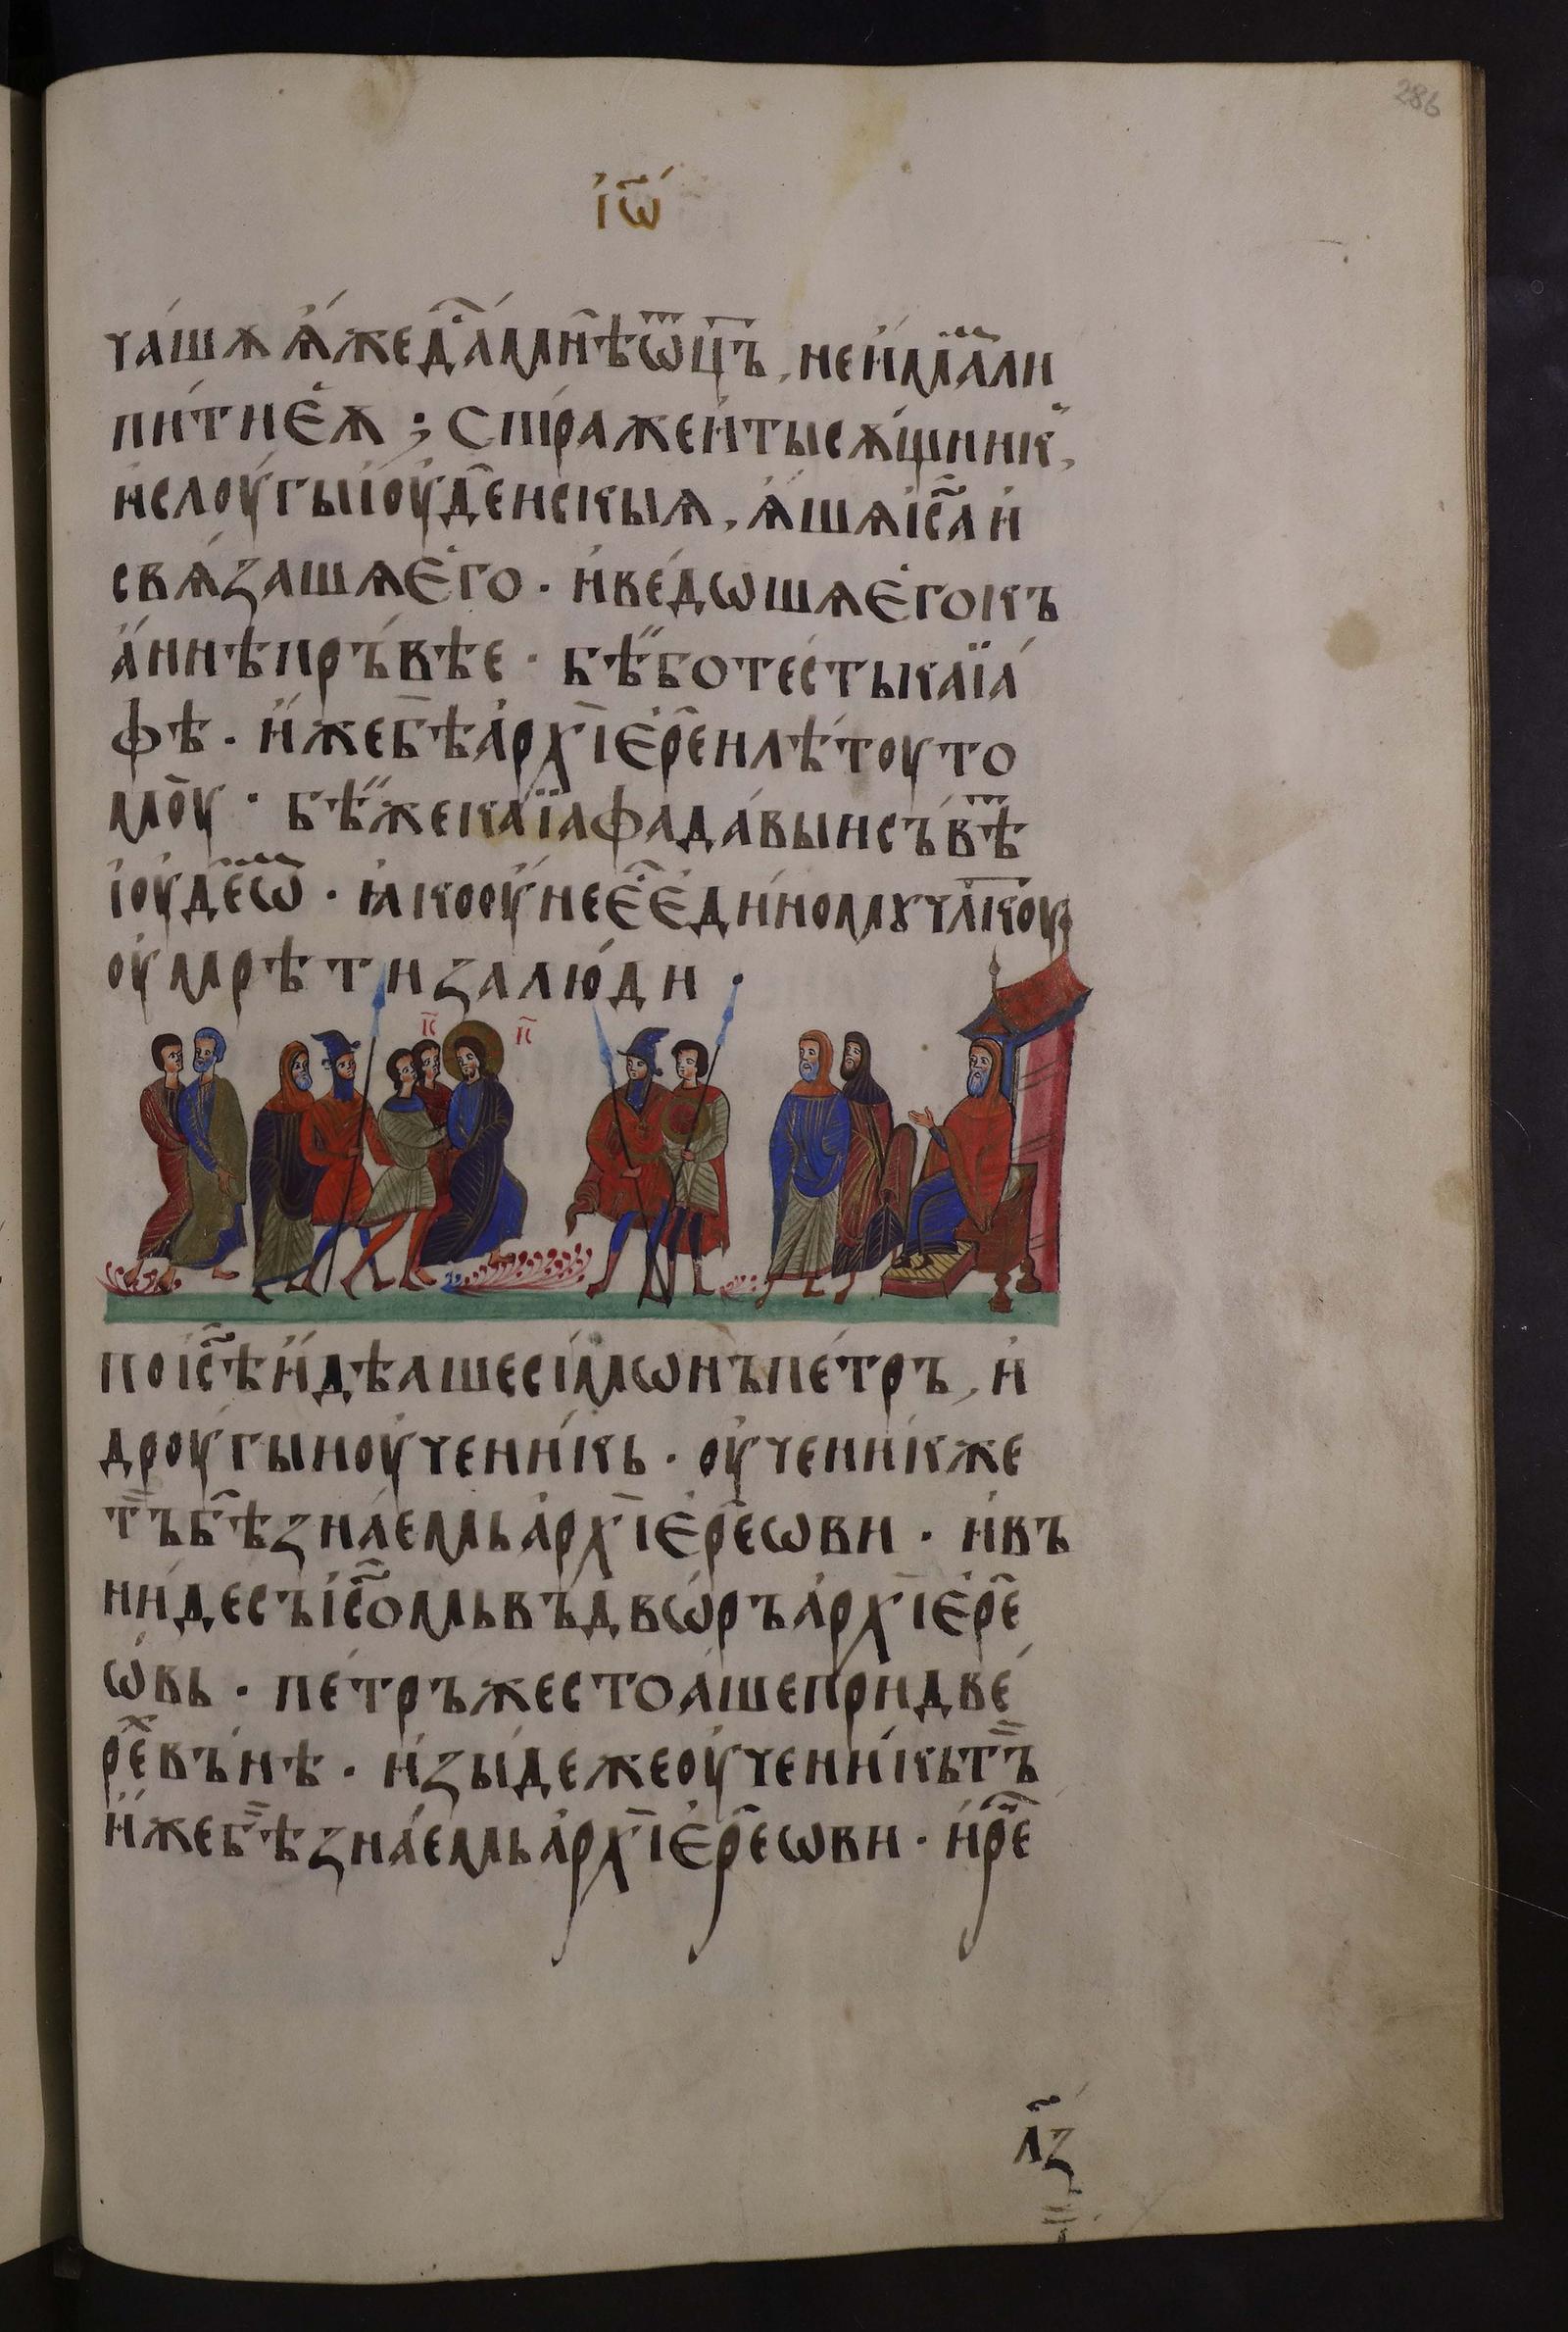 286
і҆ѡ҃
чаѫшѫ ѫ҆́же да́ мнѣ ѿц҃ъ, не и҆ма́ли
пи́ти еѫ҆ ; Спі́ра же и҆ тысѫ́щникꙿ,
и҆ слоу́гы і҆оуде́искыѧ, ѫ҆́шѧ і҆с҃а и҆
свѧ́зашѧ є҆го . и҆ ве́дошѧ є҆го къ
а҆́ннѣ пръ́вѣе · бѣ́ бо те́сть каїа́
фѣ . и҆́же бѣ а҆рхїє҆ре́и лѣ́тоу то
моу · бѣ́ же каїа́фа да́выи съвѣ́
і҆оуде́ѡ . ꙗ҆ко оу҆́не є҆́ є҆ди́номꙋ чл҃кꙋ
оу҆мрѣ́ти за лю́ди .
і҃с х҃
по і҆с҃ѣ и҆дѣ́аше сі́мѡнъ пе́тръ, и҆
дроу́гыи оу҆чени́кь . оу҆чени́к же
тъ бѣ зна́емь а҆рхїє҆ре́ѡви . и҆ въ
ни́де съ і҆с҃омь въ дво́ръ а҆рхїє҆ре
ѡ́вь . пе́тръ же стоа́ше при две́
ре́ вънѣ́ . и҆зы́де же оу҆чени́кь тъ
и҆́же бѣ зна́емь а҆рхїє҆ре́ѡви . и҆ ре
л҃з